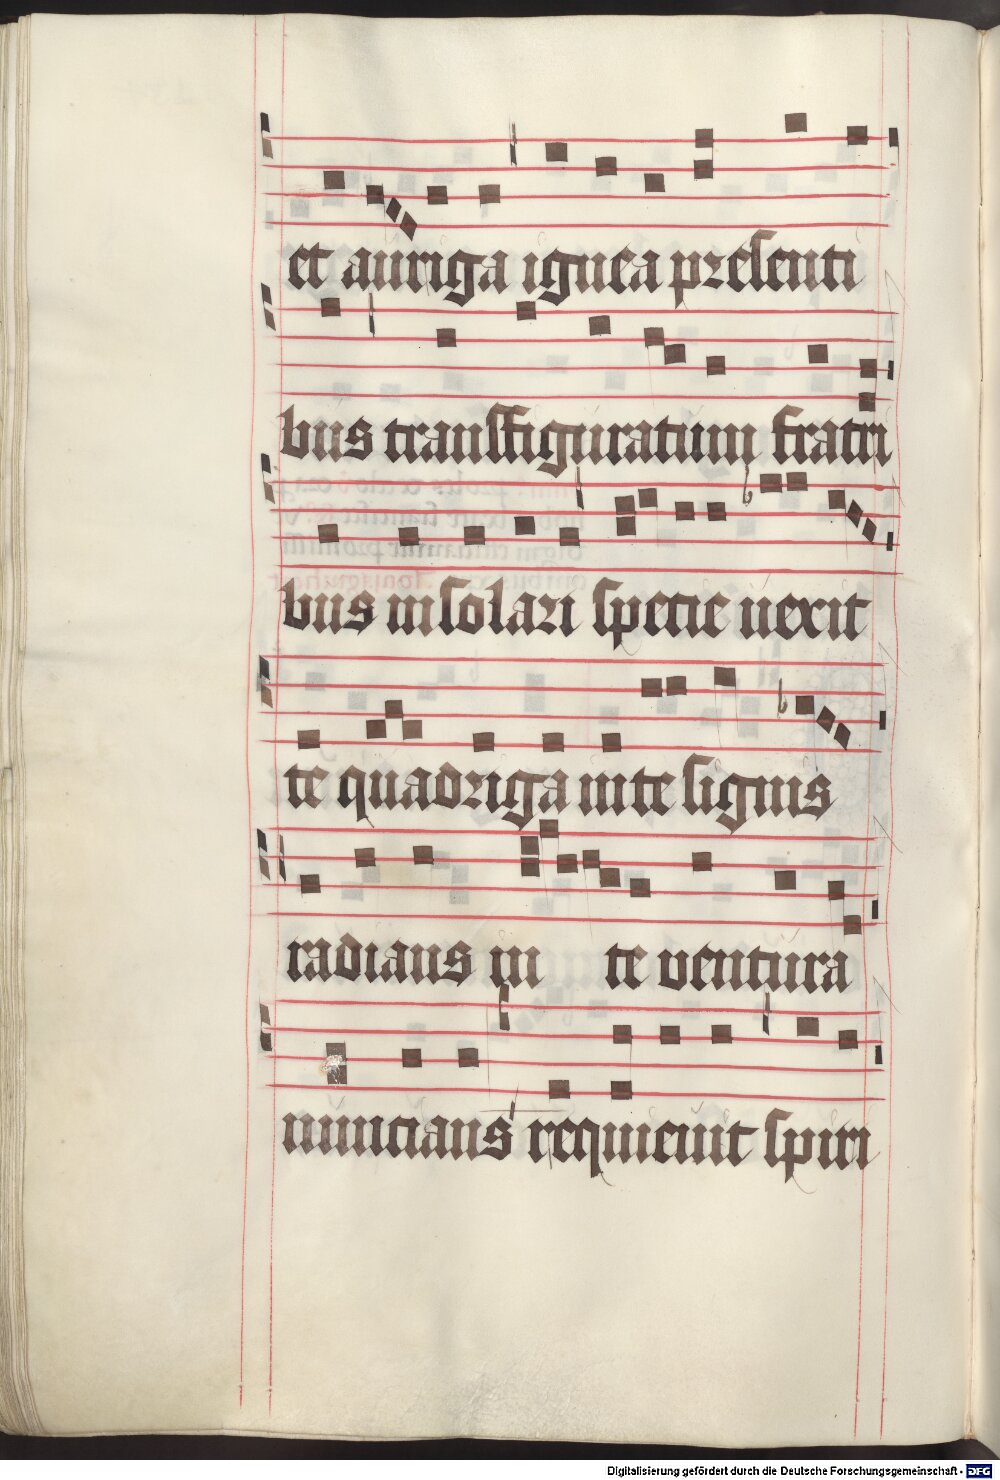 et auriga ignea presenti
bus transfiguratum fratri
bus in solari specie uexit
te quadriga in te signis
radians in te ventura
nuncians requieuit spiri
Digitalisierung gefördert durch die Deutsche Forschungsgemeinschaft - DFG